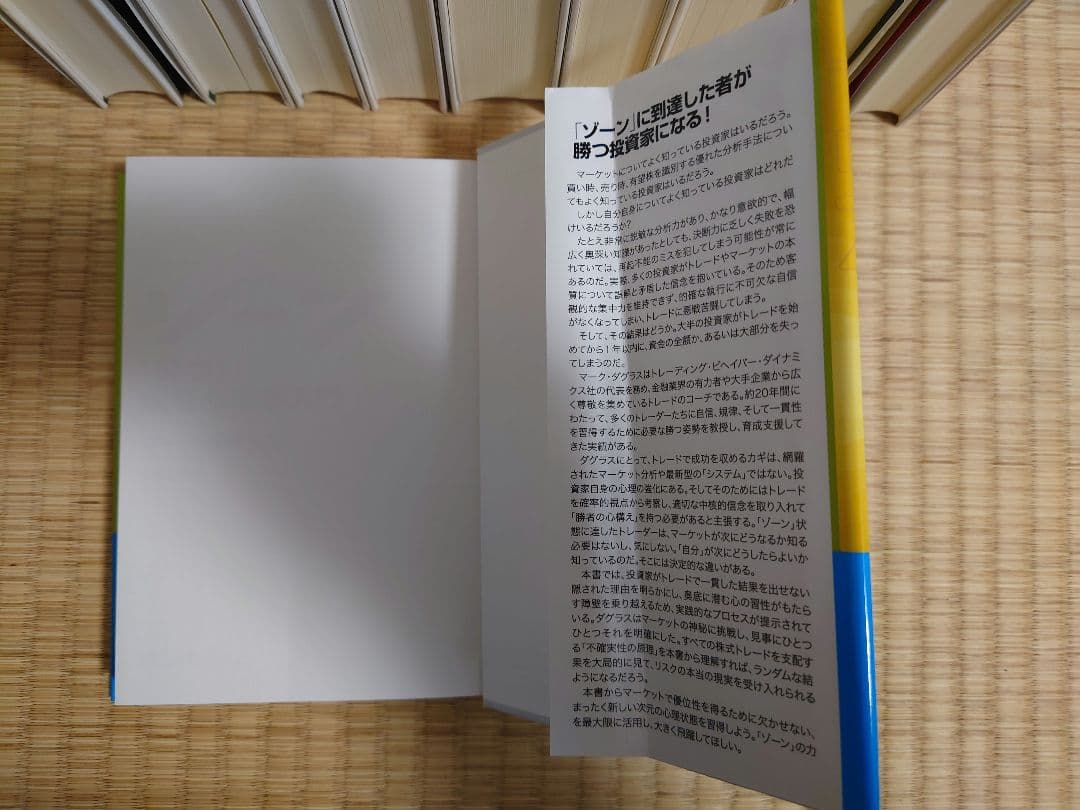 「ゾーン」に到達した者が
勝つ投資家になる！
マーケットについてよく知っている投資家はいるだろう。
買い時、売り時、有望株を識別する優れた分析手法につい
てもよく知っている投資家はいるだろう。
しかし自分自身についてよく知っている投資家はどれだ
けいるだろうか？
たとえ非常に鋭敏な分析力があり、かなり意欲的で、幅
広く奥深い知識があったとしても、決断力に乏しく失敗を恐
れていては、再起不能のミスを犯してしまう可能性が常に
あるのだ。実際、多くの投資家がトレードやマーケットの本
質について誤解と矛盾した信念を抱いている。そのため客
観的な集中力を維持できず、的確な執行に不可欠な自信
がなくなってしまい、トレードに悪戦苦闘してしまう。
そして、その結果はどうか。大半の投資家がトレードを始
めてから1年以内に、資金の全額か、あるいは大部分を失っ
てしまうのだ。
マーク・ダグラスはトレーディング・ビヘイバー・ダイナミ
クス社の代表を務め、金融業界の有力者や大手企業から広
く尊敬を集めているトレードのコーチである。約20年間に
わたって、多くのトレーダーたちに自信、規律、そして一貫性
を習得するために必要な勝つ姿勢を教授し、育成支援して
きた実績がある。
ダグラスにとって、トレードで成功を収めるカギは、網羅
されたマーケット分析や最新型の「システム」ではない。投
資家自身の心理の強化にある。そしてそのためにはトレード
を確率的視点から考察し、適切な中核的信念を取り入れて
「勝者の心構え」を持つ必要があると主張する。「ゾーン」状
態に達したトレーダーは、マーケットが次にどうなるか知る
必要はないし、気にしない。「自分」が次にどうしたらよいか
知っているのだ。そこには決定的な違いがある。
本書では、投資家がトレードで一貫した結果を出せない
隠された理由を明らかにし、奥底に潜む心の習性がもたら
す障壁を乗り越えるため、実践的なプロセスが提示されて
いる。ダグラスはマーケットの神秘に挑戦し、見事にひとつ
ひとつそれを明確にした。すべての株式トレードを支配す
る「不確実性の原理」を本書から理解すれば、ランダムな結
果を大局的に見て、リスクの本当の現実を受け入れられる
ようになるだろう。
本書からマーケットで優位性を得るために欠かせない、
まったく新しい次元の心理状態を習得しよう。「ゾーン」の力
を最大限に活用し、大きく飛躍してほしい。